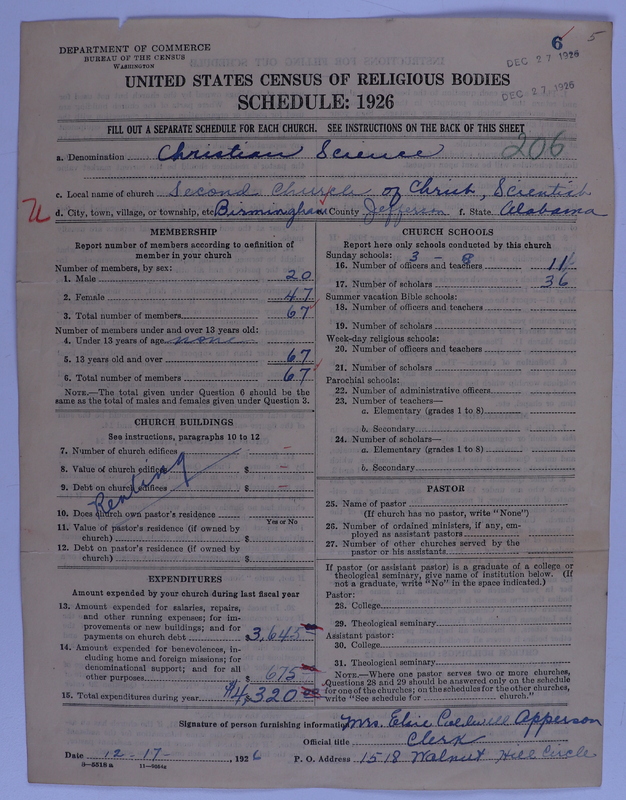 DEPARTMENT OF COMMERCE
BUREAU OF THE CENSUS
WASHINGTON
6 5
DEC 27 1926
DEC 27 1926
UNITED STATES CENSUS OF RELIGIOUS BODIES
SCHEDULE: 1926
FILL OUT A SEPARATE SCHEDULE FOR EACH CHURCH. SEE INSTRUCTIONS ON THE BACK OF THIS SHEET
a. Denomination Christian Science 206
c. Local name of church Second Church of Christ, Scientist
U d. City, town, village, or township, etc. Birmingham County Jefferson f. State Alabama
MEMBERSHIP
Report number of members according to definition of
member in your church
Number of members, by sex:
1. Male 20
2. Female 47
3. Total number of members 67
Number of members under and over 13 years old:
4. Under 13 years of age none
5. 13 years old and over 67
6. Total number of members 67
NOTE.—The total given under Question 6 should be
same as the total of males and females given under Question 3.
CHURCH BUILDINGS
See instructions, paragraphs 10 to 12
7. Number of church edifices –
8. Value of church edifices $ –
9. Debt on church edifices $ –
Renting
10. Does church own pastor's residence
Yes or No
11. Value of pastor's residence (if owned by
church) $
12. Debt on pastor's residence (if owned by
church) $
EXPENDITURES
Amount expended by your church during last fiscal year
13. Amount expended for salaries, repairs,
and other running expenses; for im-
provements or new buildings; and for
payments on church debt $ 3,645
14. Amount expended for benevolences, in-
cluding home and foreign missions; for
denominational support; and for all
other purposes $ 675
15. Total expenditures during year $4,320
CHURCH SCHOOLS
Report here only schools conducted by this church
Sunday schools: 3 - 8
16. Number of officers and teachers 11
17. Number of scholars 36
Summer vacation Bible schools:
18. Number of officers and teachers
19. Number of scholars
Week-day religious schools:
20. Number of officers and teachers
21. Number of scholars
Parochial schools:
22. Number of administrative officers
23. Number of teachers—
a. Elementary (grades 1 to 8)
b. Secondary
24. Number of scholars—
a. Elementary (grades 1 to 8)
b. Secondary
PASTOR
25. Name of pastor
(If church has no pastor, write "None")
26. Number of ordained ministers, if any, em-
ployed as assistant pastors
27. Number of other churches served by the
pastor or his assistants
If pastor (or assistant pastor) is a graduate of a college or
theological seminary, give name of institution below. (If
not a graduate, write "No" in the space indicated.)
Pastor:
28. College
29. Theological seminary
Assistant pastor:
30. College
31. Theological seminary
NOTE.—Where one pastor serves two or more churches,
Questions 28 and 29 should be answered only on the schedule
for one of the churches; on the schedules for the other churches,
write "See schedule for church."
Signature of person furnishing information Mrs. Elsie Caldwell Apperson
Official title Clerk
Date 12-17-, 1926 P. O. Address 1518 Walnut Hill Circle